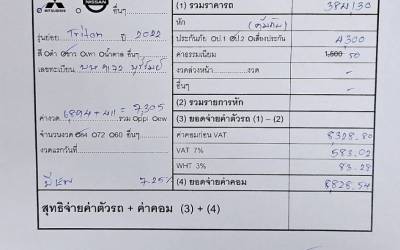 MITSUBISHI NISSAN อื่นๆ
(1) รวมราคารถ 384,130
หัก (คุ้มภัย)
รุ่นย่อย Triton ปี 2022
ประกันภัย ป.1 ป.2 เสี่ยงประกัน 4,300
สี ดำ ขาว เทา น้ำตาล อื่นๆ
ค่าธรรมเนียม 1,500 50
เลขทะเบียน บห 9172 บุรีรัมย์
งวดล่วงหน้า งวด -
อื่นๆ -
(2) รวมรายการหัก
ค่างวด 6,894+411 = 7,305 รวม ppi ew
(3) ยอดจ่ายค่าตัวรถ (1) – (2)
จำนวนงวด 84 72 60 อื่นๆ
ค่าคอมก่อน VAT 8,328.80
งวดแรกวันที่
VAT 7% 583.02
WHT 3% 83.28
7.25%
(4) ยอดจ่ายค่าคอม 8,828.54
สุทธิจ่ายค่าตัวรถ + ค่าคอม (3) + (4)